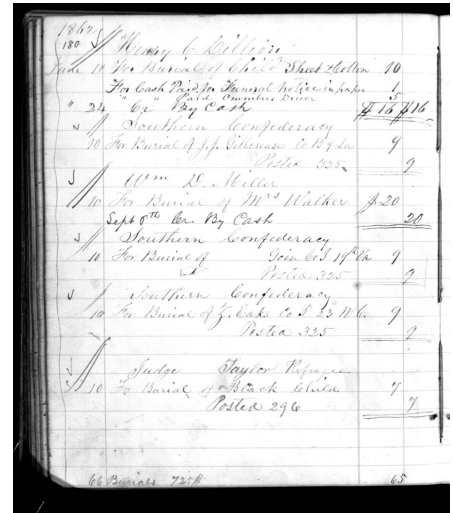 1862
180 Henry C. Gillion
June 10 For Burial of Child Sheet & Cotton 10
For Cash Paid for Funeral Notice in paper 1
" " Paid Omnibus Driver 5
" 24 Cr By Cash $16 $16
Southern Confederacy
10 For Burial of J.J. Co B 9 La 9
Posted 325 9
Wm D. Miller
10 For Burial of Mrs Walker $20
Sept 8th Cr. By Cash 20
Southern Confederacy
10 For Burial of Goin Co I 19th Va 9
Posted 325 9
Southern Confederacy
10 For Burial of Z. Eaks Co I 23 N C. 9
Posted 325 9
Judge Taylor Refugee
10 For Burial of Black Child 7
Posted 296 7
66 Burials 65